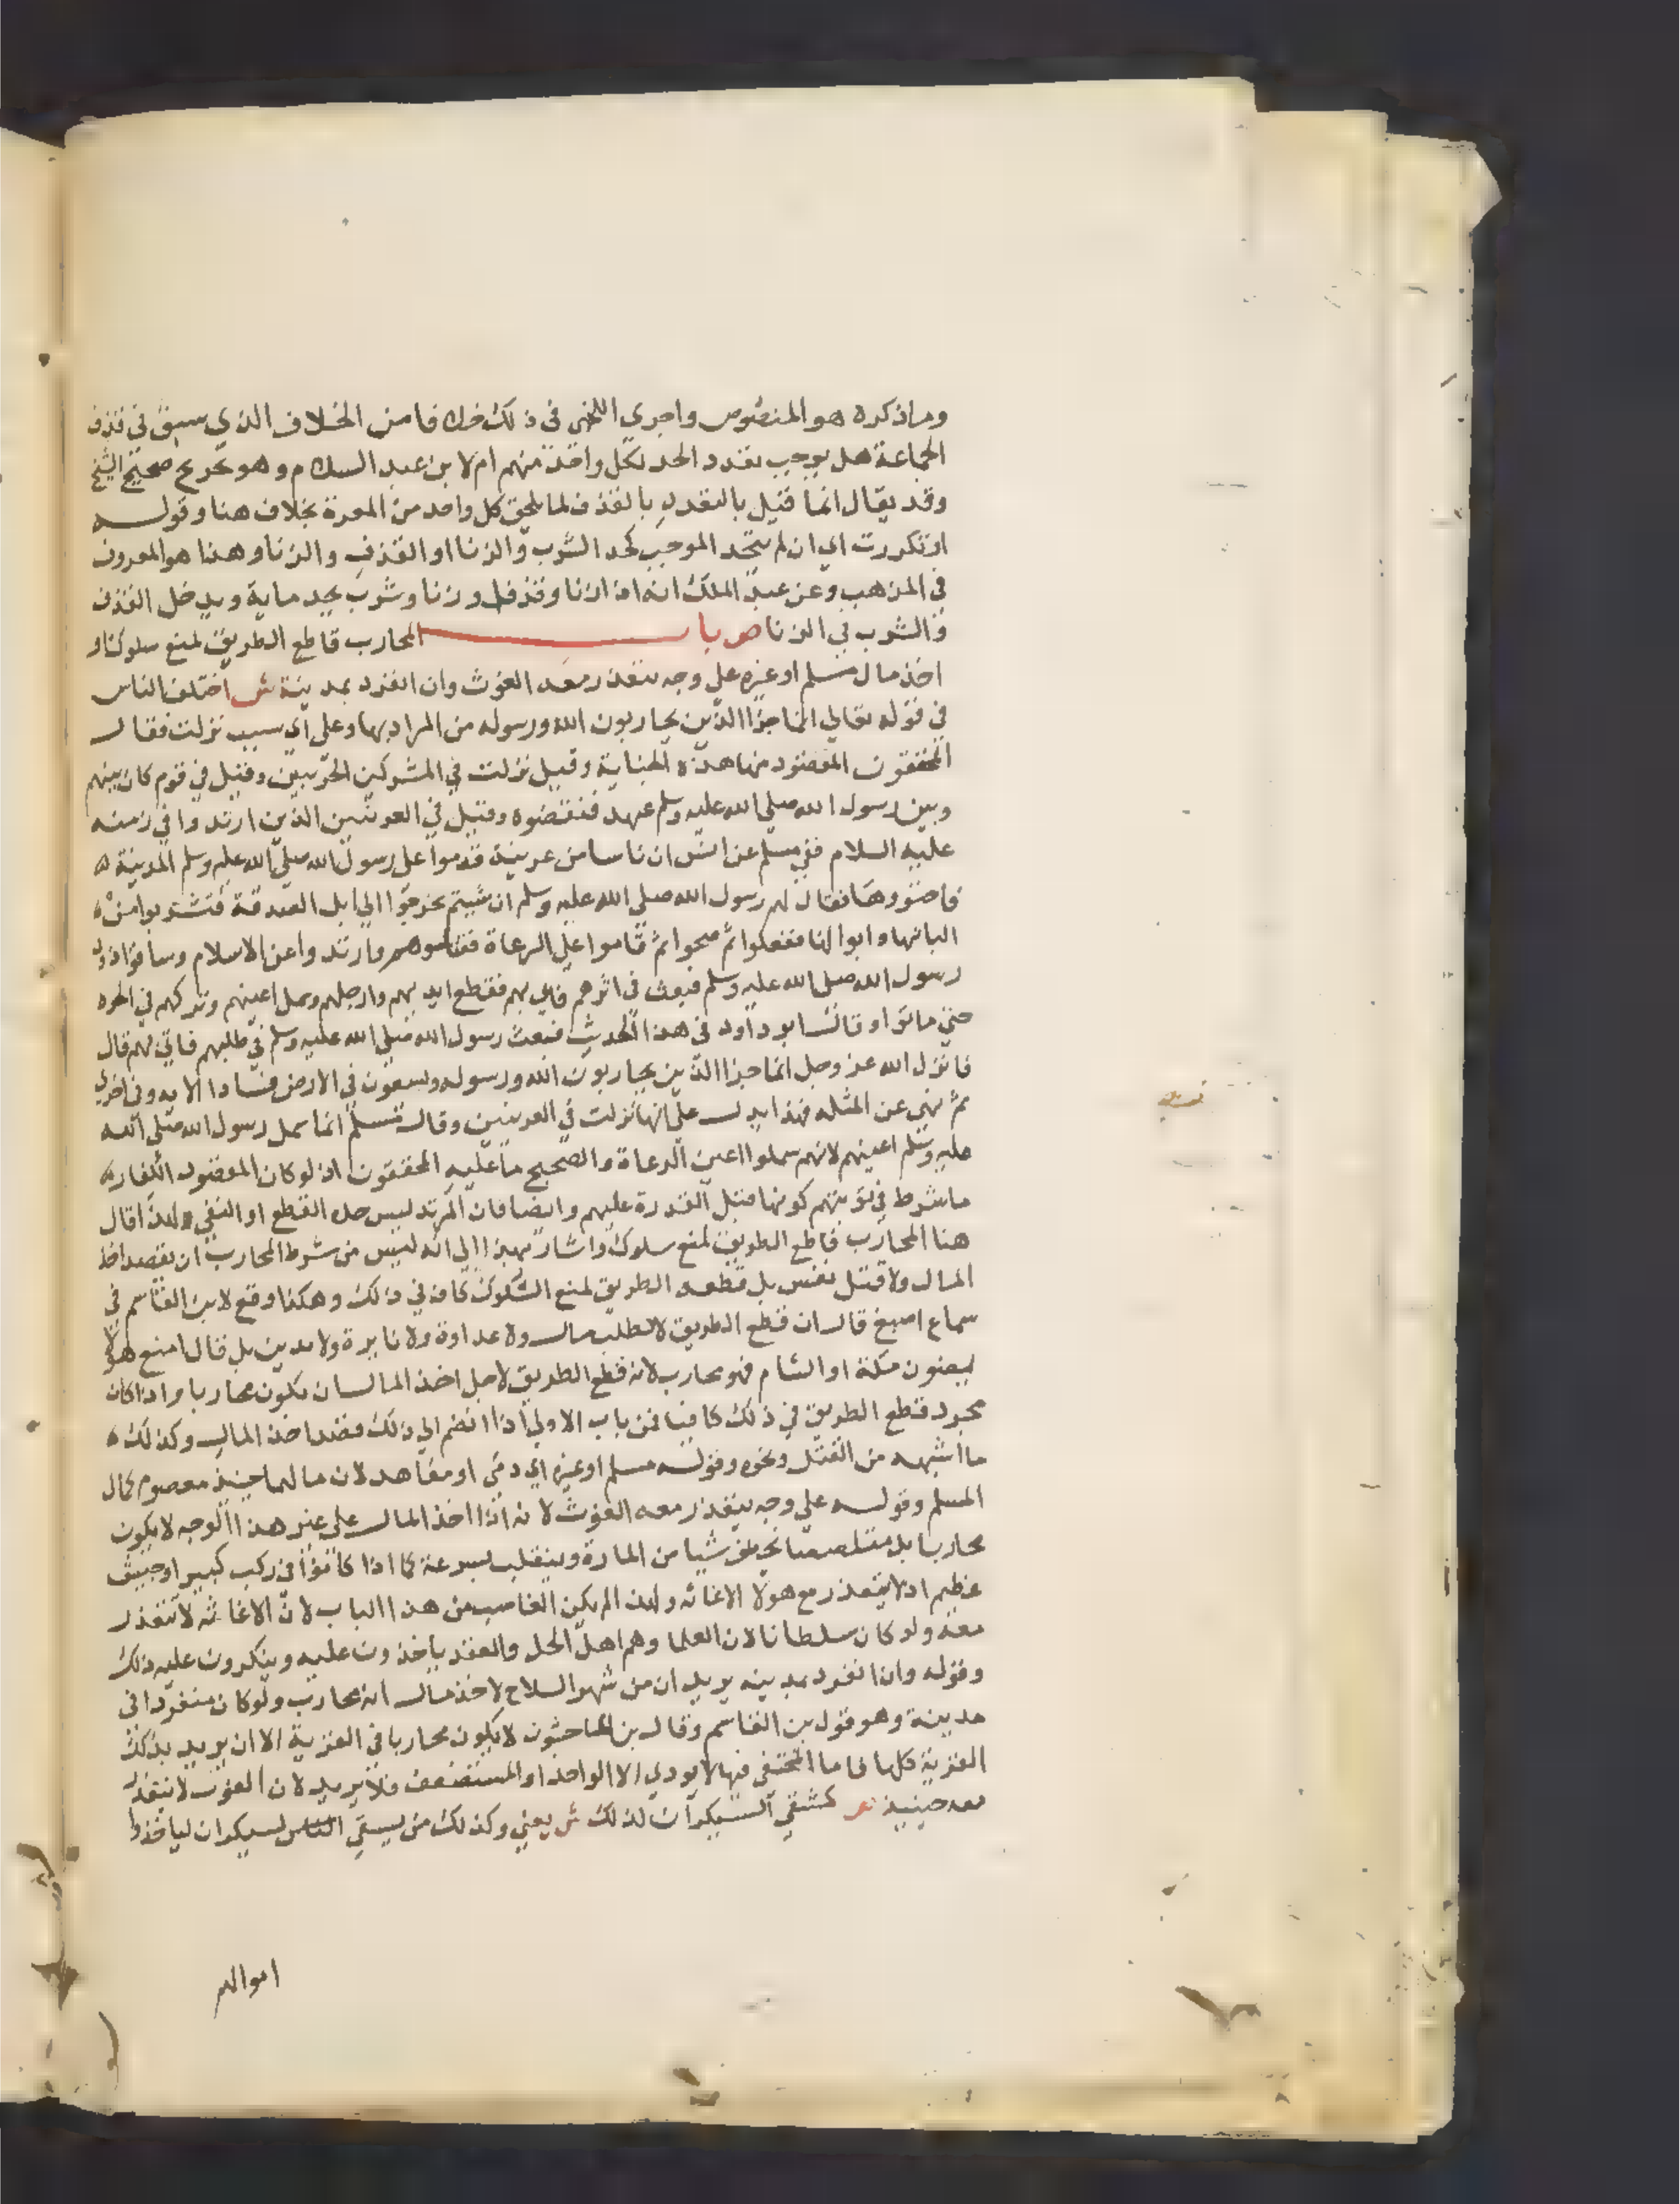 وما ذكره هو المنصوص واجرى اللخمى فى ذلك خلافا من الخلاف الذي سبق في قذف
الجماعة هل يوجب تعدد الحد لكل واحد منهم ام لا ابن عبد السلام وهو تخريج صحيح الشيخ
وقد يقال انما قيل بالتعدد بالقذف لما يلحق كل واحد من المعرة بخلاف هنا وقوله
او تكررت اي ان لم يتحد الموجب كحد الشرب والزنا او القذف والزنا وهذا هو المعروف
في المذهب وعن عبد الملك انه اذا زنا وقذف وشرب يحد ماية ويدخل القذف
والشرب في الزنا ص باب المحارب قاطع الطريق لمنع سلوك او
اخذ مال مسلم او غيره على وجه يتعذر معه الغوث وان انفرد بمدينة ش اختلف الناس
في قوله تعالي انما جزا الذين يحاربون الله ورسوله من المراد بها وعلى اي سبب نزلت فقال
المحققون المقصود منها هذه الجناية وقيل نزلت في المشركين الحربيين وقيل في قوم كان بينهم
وبين رسول الله صلي الله عليه وسلم عهد فنقضوه وقيل في العرنيين الذين ارتدوا في زمنه
عليه السلام ففي مسلم عن انس ان ناسا من عرينة قدموا على رسول الله صلى الله عليه وسلم المدينة
فاجتووها فقال لهم رسول الله صلى الله عليه وسلم ان شيتم تخرجوا الي ابل الصدقة فتشربوا من
البانها وابوالها ففعلوا ثم صحوا ثم قاموا على الرعاة فقتلوهم وارتدوا عن الاسلام وساقوا ذود
رسول الله صلى الله عليه وسلم فبعث في اثرهم فاتي بهم فقطع ايديهم وارجلهم وسمل اعينهم وتركهم في الحره
حتي ماتوا وقال ابو داود في هذا الحديث فبعث رسول الله صلي الله عليه وسلم في طلبهم فاتي بهم قال
فانزل الله عز وجل انما جزا الذين يحاربون الله ورسوله ويسعون في الارض فسادا الايه وفي اخرى
ثم نهي عن المثله فهذا يدل على انها نزلت في العرنيين وقال مسلم انما سمل رسول الله صلى الله
عليه وسلم اعينهم لانهم سملوا اعين الرعاة والصحيح ما عليه المحققون اذ لو كان المقصود الكفار
ما شرط في توبتهم كونها قبل القدرة عليهم وايضا فان المرتد ليس حده القطع او النفي ولهذا قال
هنا المحارب قاطع الطريق لمنع سلوك واشار بهذا الي انه ليس من شرط المحارب ان يقصد اخذ
المال ولا قتل نفس بل قطعه الطريق لمنع السلوك كاف في ذلك وهكذا وقع لابن القاسم في
سماع اصبغ قال ان قطع الطريق لا لطلب مال ولا عداوة ولا نايرة ولا بل قال امنع هولا
يمضون مكة او الشام فهو محارب لانه قطع الطريق لاجل اخذ المال يكون محاربا واذا كان
مجرد قطع الطريق في ذلك كافيا فمن باب الاولي اذا انضم الي ذلك قصد اخذ المال وكذلك
ما اشبهه من القتل ونحوه وقوله مسلم او غيره اي ذمي او معاهد لان مالهما حينيذ معصوم كمال
المسلم وقوله علي وجه يتعذر معه الغوث لانه اذا اخذ المال على غير هذا الوجه لا يكون
محاربا بل متلصصا شيا من المارة وينقلب بسرعة كما اذا كانوا في ركب كبير او جيش
عظيم اذ لا يتعذر مع هولا الاغاثه ولهذا لم يكن الغاصب من هذا الباب لان الاغاثه لا تتعذر
معه ولو كان سلطانا لان العلما وهم اهل الحل والعقد ياخذون عليه وينكرون عليه ذلك
وقوله وان انفرد بمدينه يريد ان من شهر السلاح لاخذ مال انه محارب ولو كان منفردا في
مدينة وهو قول بن القاسم وقال بن الماجشون لا يكون محاربا في القرية الا ان يريد بذلك
القرية كلها فاما المختفي فيها لا يودي الا الواحد او المستضعف فلا يريد لان الغوث لا يتعذر
معه حينيذ ص كمسقي السيكران لذلك ش يعني وكذلك من يسقي الناس السيكران لياخذوا
اموالهم